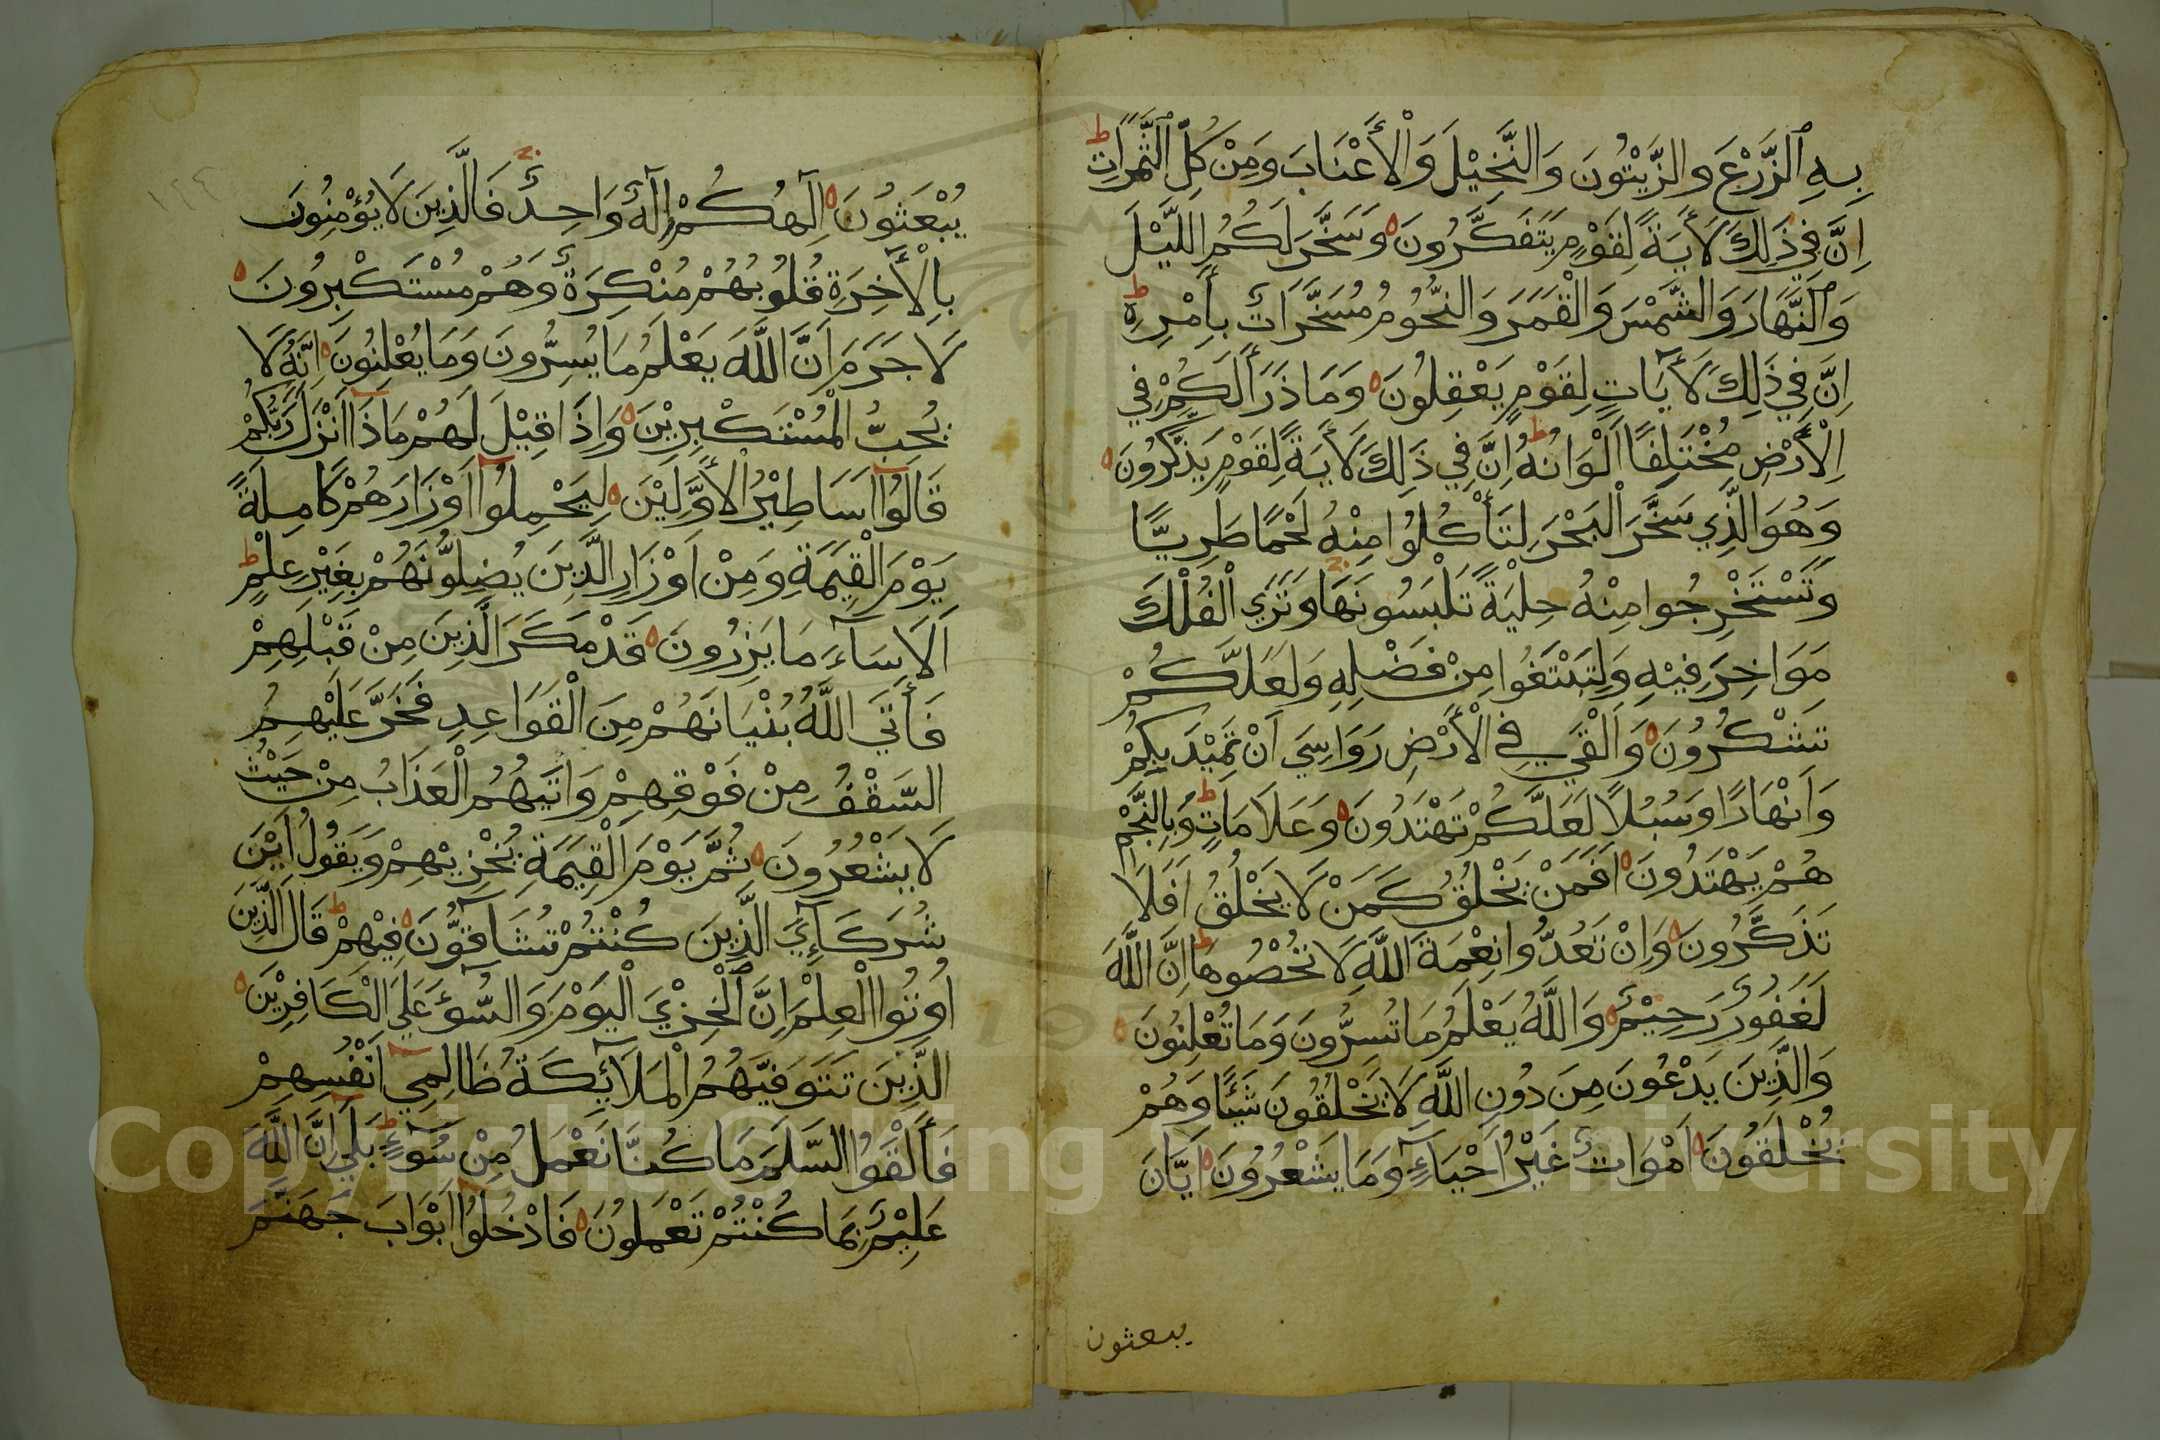 بِهِ ٱلزَّرْعَ وَالزَّيْتُونَ وَالنَّخِيْلَ وَالْأَعْنَابَ وَمِنْ كُلِّ الثَّمَرَاتِ ط
اِنَّ فِي ذَلِكَ لَأَيَةً لِقَوْمٍ يَتَفَكَّرُونَ ه وَسَخَّرَ لَكُمُ اللَّيْلَ
وَالنَّهَارَ وَالشَّمْسَ وَالْقَمَرَ وَالنُّجُومُ مُسَخَّرَاتٌ بِأَمْرِهِ ط
اِنَّ فِي ذَلِكَ لَأَيَاتٍ لِقَوْمٍ يَعْقِلُونَ ه وَمَا ذَرَأَ لَكُمْ فِي
الْأَرْضِ مُخْتَلِفًا اَلْوَانُهُ ط اِنَّ فِي ذَلِكَ لَأَيَةً لِقَوْمٍ يَذَّكَّرُونَ ه
وَهُوَ الَّذِي سَخَّرَ الْبَحْرَ لِتَأْكُلُوا مِنْهُ لَحْمًا طَرِيًّا
وَتَسْتَخْرِجُوا مِنْهُ حِلْيَةً تَلْبَسُونَهَا وَتَرَي الْفُلْكَ
مَوَاخِرَ فِيْهِ وَلِتَبْتَغُوا مِنْ فَضْلِهِ وَلَعَلَّكُمْ
تَشْكُرُونَ ه وَاَلْقَي فِي الْأَرْضِ رَوَاسِيَ اَنْ تَمِيْدَ بِكُمْ
وَاَنْهَارًا وَسُبُلًا لَعَلَّكُمْ تَهْتَدُونَ ه وَعَلَامَاتٍ ط وَبِالنَّجْمِ
هُمْ يَهْتَدُونَ ه اَفَمَنْ يَخْلُقُ كَمَنْ لَا يَخْلُقُ اَفَلَا
تَذَكَّرُونَ ه وَاِنْ تَعُدُّوا نِعْمَةَ اللَّهِ لَا تُحْصُوهَا ط اِنَّ اللَّهَ
لَغَفُورٌ رَحِيْمٌ ه وَاللَّهُ يَعْلَمُ مَا تُسِرُّونَ وَمَا تُعْلِنُونَ ه
وَالَّذِينَ يَدْعُونَ مِنْ دُونِ اللَّهِ لَا يَخْلُقُونَ شَيْئًا وَهُمْ
يُخْلَقُونَ ه اَمْوَاتٌ غَيْرُ اَحْيَآءٍ وَمَا يَشْعُرُونَ ه اَيَّانَ
يبعثون
يُبْعَثُونَ ه اِلَهُكُمْ اِلَهٌ وَاحِدٌ فَالَّذِينَ لَا يُؤْمِنُونَ
بِالْأَخِرَةِ قُلُوبُهُمْ مُنْكِرَةٌ وَهُمْ مُسْتَكْبِرُونَ ه
لَا جَرَمَ اَنَّ اللَّهَ يَعْلَمُ مَا يُسِرُّونَ وَمَا يُعْلِنُونَ ه اِنَّهُ لَا
يُحِبُّ الْمُسْتَكْبِرِيْنَ ه وَاِذَا قِيْلَ لَهُمْ مَاذَآ اَنْزَلَ رَبُّكُمْ
قَالُوآ اَسَاطِيْرُ الْأَوَّلِيْنَ ه لِيَحْمِلُوآ اَوْزَارَهُمْ كَامِلَةً
يَوْمَ الْقِيَمَةِ وَمِنْ اَوْزَارِ الَّذِينَ يُضِلُّونَهُمْ بِغَيْرِ عِلْمٍ ط
اَلَا سَآءَ مَا يَزِرُونَ ه قَدْ مَكَرَ الَّذِينَ مِنْ قَبْلِهِمْ
فَأَتَي اللَّهُ بُنْيَانَهُمْ مِنَ الْقَوَاعِدِ فَخَرَّ عَلَيْهِمُ
السَّقْفُ مِنْ فَوْقِهِمْ وَاَتَيهُمُ الْعَذَابُ مِنْ حَيْثُ
لَا يَشْعُرُونَ ه ثُمَّ يَوْمَ الْقِيَمَةِ يُخْزِيْهِمْ وَيَقُولُ اَيْنَ
شُرَكَآءِيَ الَّذِينَ كُنْتُمْ تُشَآقُّونَ فِيْهِمْ ط قَالَ الَّذِينَ
اُوتُوا الْعِلْمَ اِنَّ الْخِزْيَ الْيَوْمَ وَالسُّوٓءَ عَلَي الْكَافِرِيْنَ ه
الَّذِينَ تَتَوَفَّيهُمُ الْمَلَآئِكَةُ ظَالِمِيٓ اَنْفُسِهِمْ
فَأَلْقَوُا السَّلَمَ مَا كُنَّا نَعْمَلُ مِنْ سُوٓءٍ ط بَلَي اِنَّ اللَّهَ
عَلِيْمٌ بِمَا كُنْتُمْ تَعْمَلُونَ ه فَادْخُلُوآ اَبْوَابَ جَهَنَّمَ